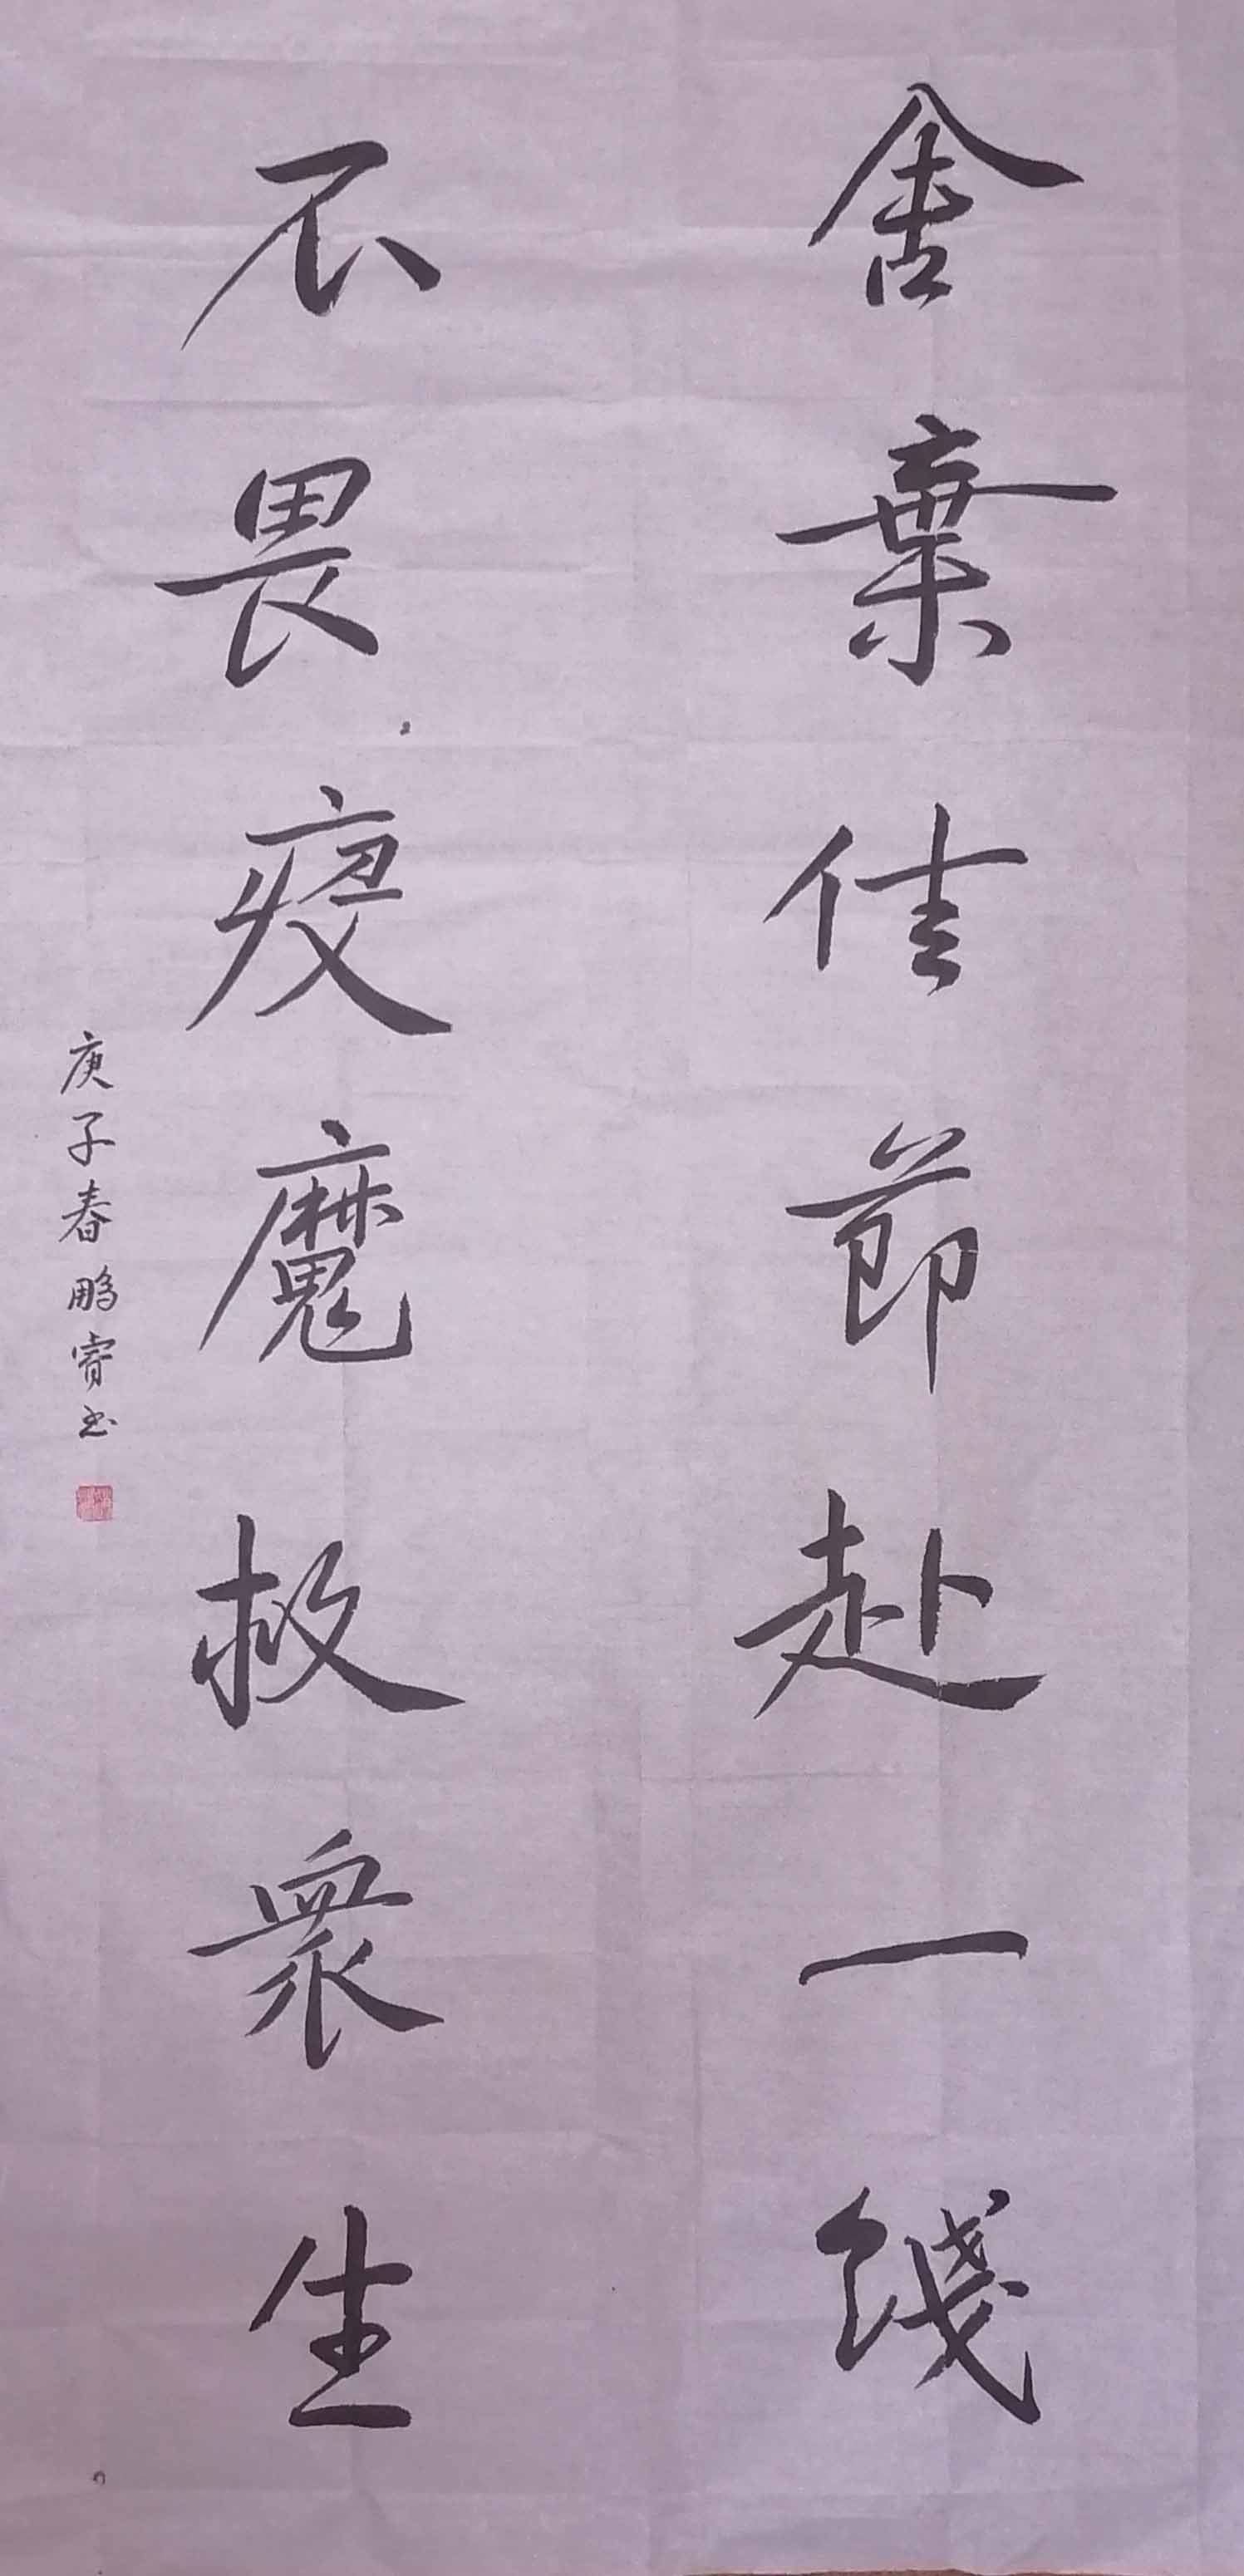 舍棄佳節赴一綫
不畏疫魔救衆生
庚子春鵬寳书